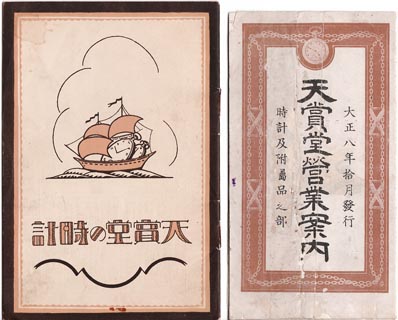 計時の堂賞天
大正八年拾月發行
天賞堂營業案内
時計及附屬品之部